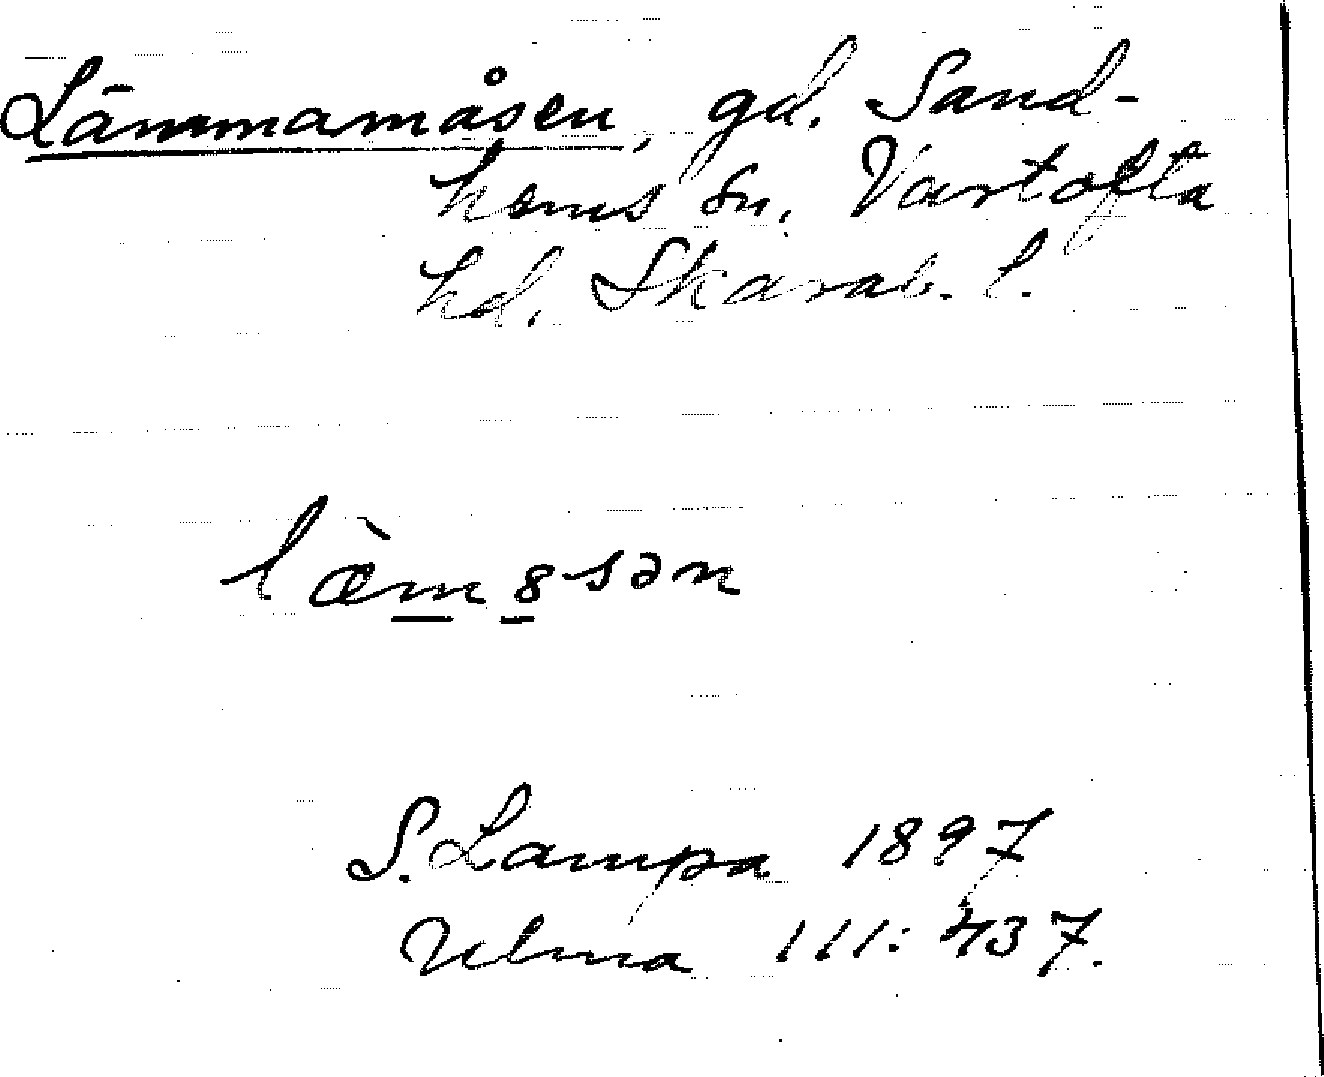 Lämmamåsen, gd. Sand-
hems sn. Vartofta
hd. Skarab. l.
l æ̀m 8 sən
S. Lampa 1897
Ulma 111:437.